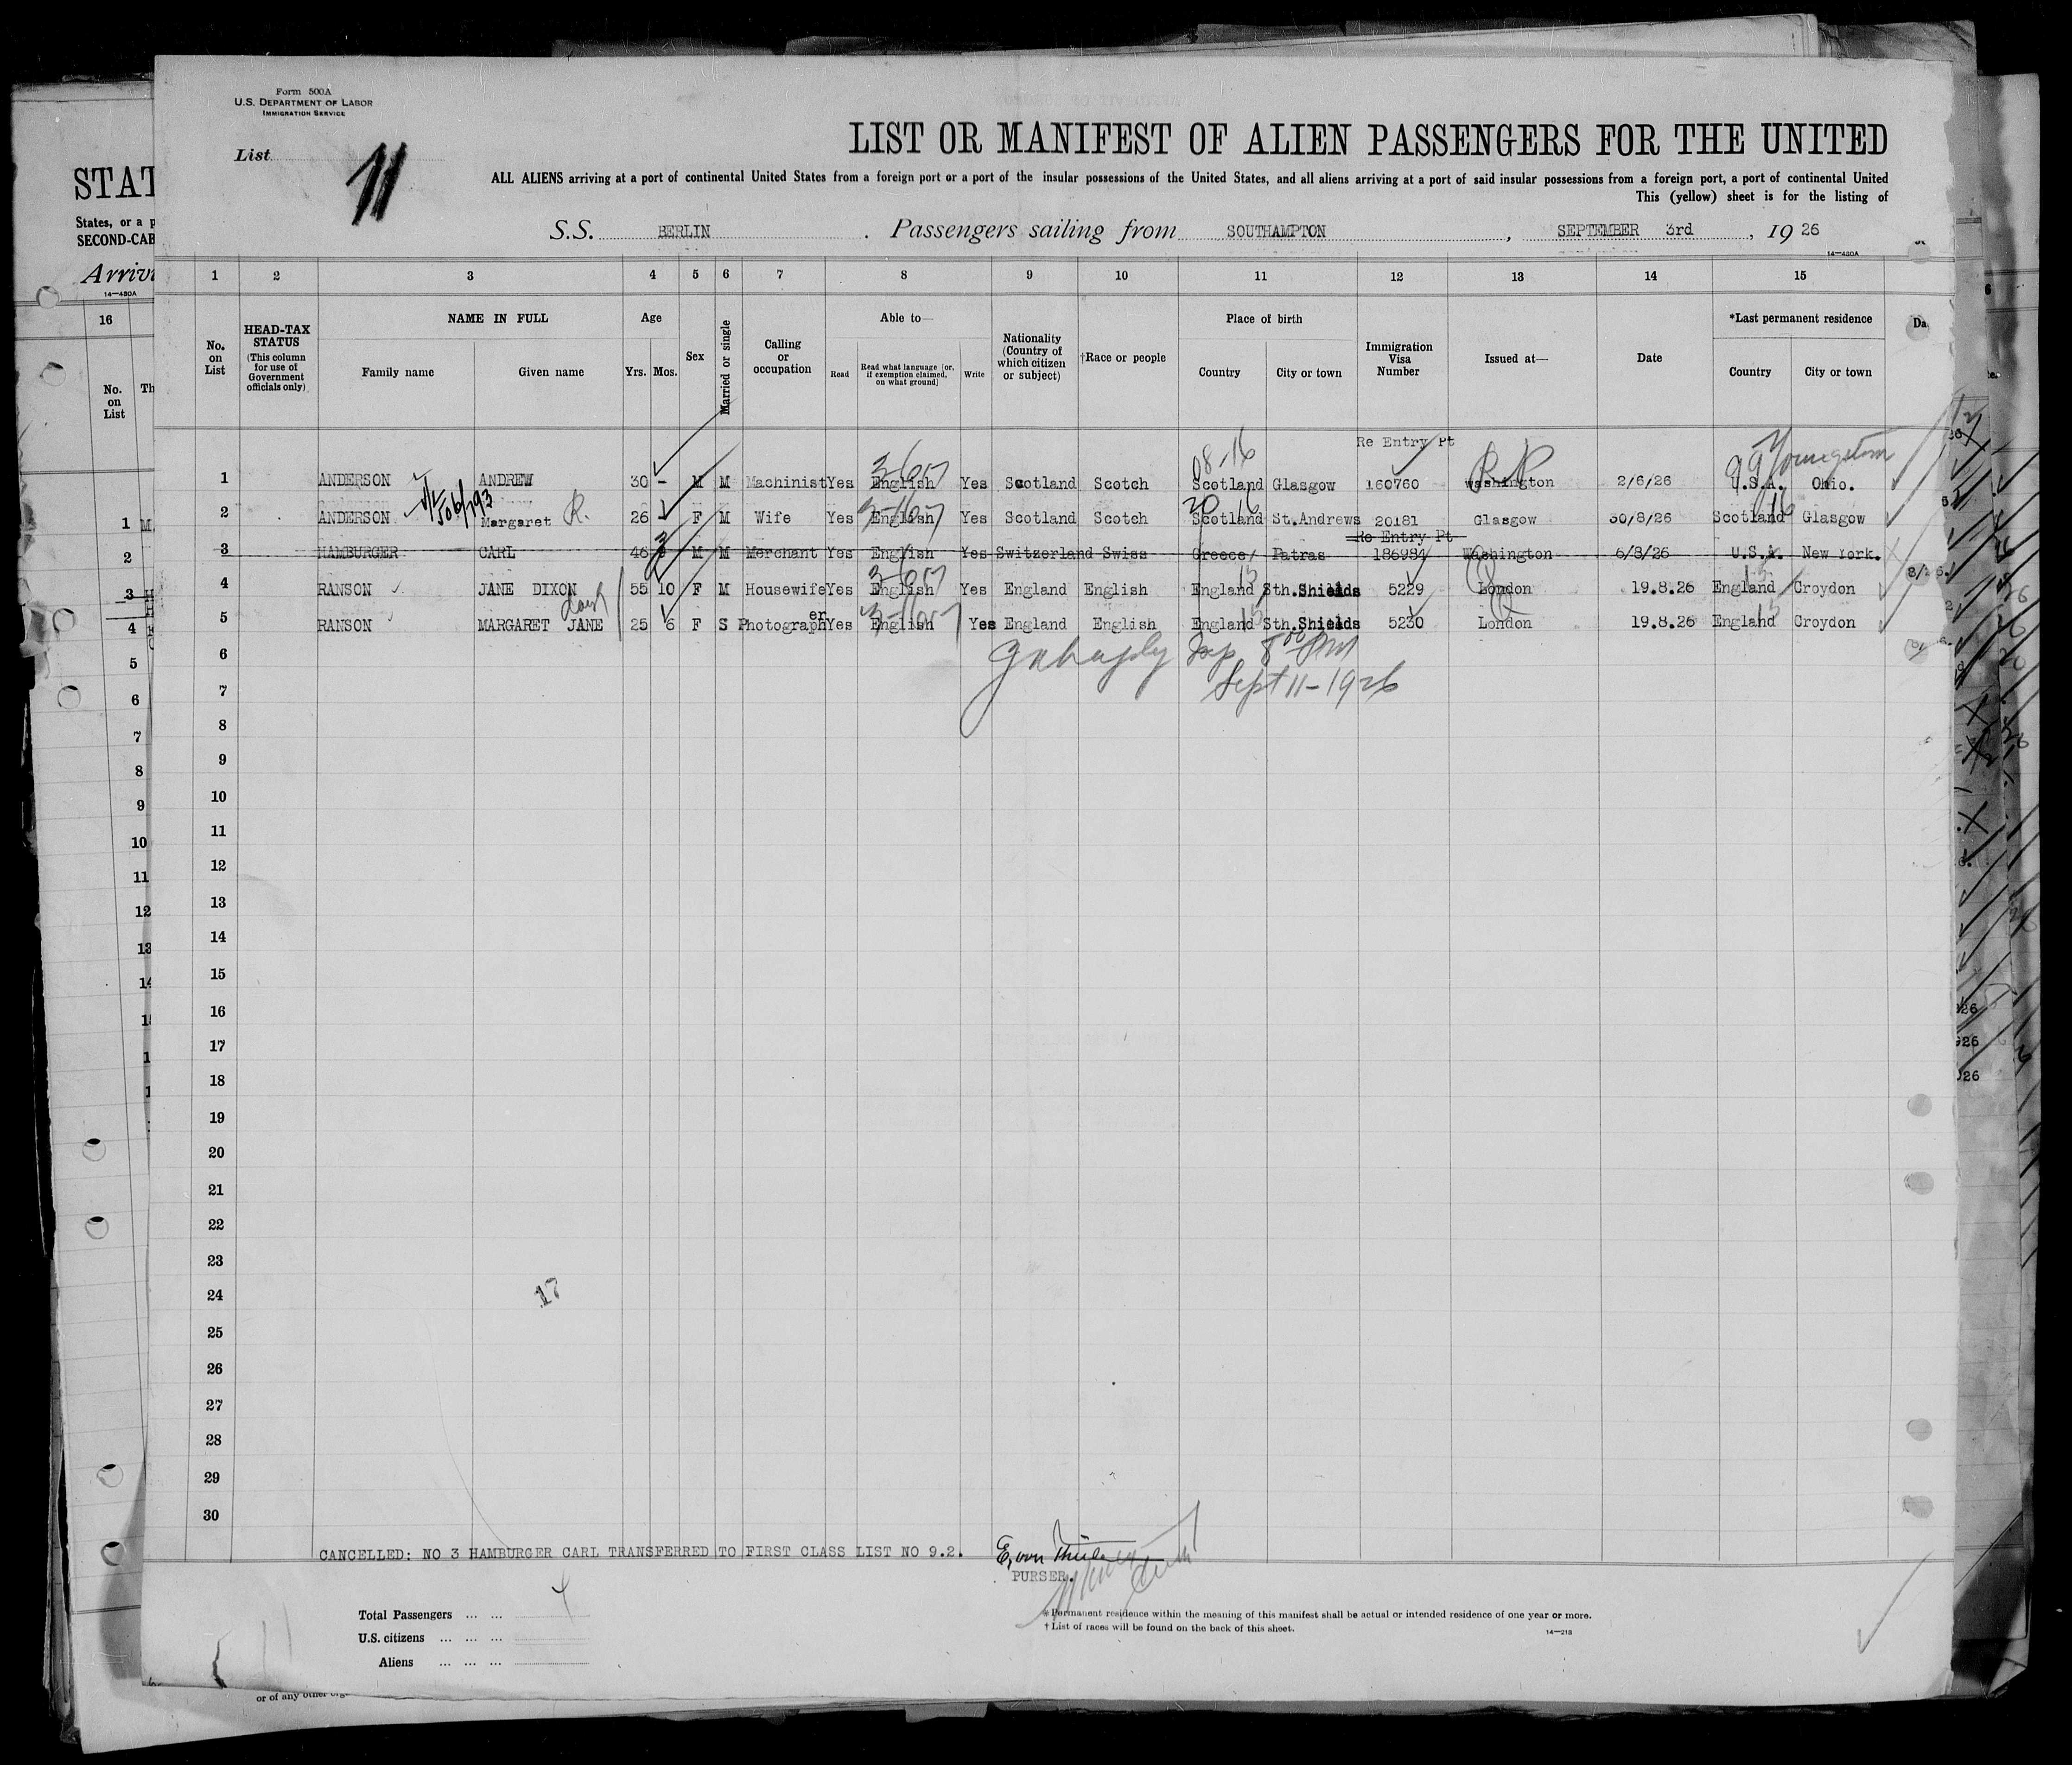 Form 500A
U.S. DEPARTMENT OF LABOR
IMMIGRATION SERVICE
List 11
LIST OR MANIFEST OF ALIEN PASSENGERS FOR THE UNITED
ALL ALIENS arriving at a port of continental United States from a foreign port or a port of the insular possessions of the United States, and all aliens arriving at a port of said insular possessions from a foreign port, a port of continental United
This (yellow) sheet is for the listing of
S.S. BERLIN. Passengers sailing from SOUTHAMPTON, SEPTEMBER 3rd, 19 26
14—430A
STAT
States, or a p
SECOND-CAB
Arriv
14—430A
16
No. on List
Th
1 2 3 4 5 6 7 8 9 10 11 12 13 14 15
No. on List
HEAD-TAX STATUS (This column for use of Government officials only)
NAME IN FULL
Family name Given name
Age
Yrs. Mos.
Sex
Married or single
Calling or occupation
Able to—
Read Read what language [or, if exemption claimed, on what ground] Write
Nationality (Country of which citizen or subject)
†Race or people
Place of birth
Country City or town
Immigration Visa Number
Issued at—
Date
*Last permanent residence
Country City or town
Da
Re Entry Pt
08-16
3-6017
Youngstown
1 ANDERSON ANDREW 30 - M M Machinist Yes English Yes Scotland Scotch Scotland Glasgow 160760 Washington 2/6/26 U.S.A. Ohio.
2 ANDERSON Margaret R. 26 F M Wife Yes English Yes Scotland Scotch Scotland St.Andrews 20181 Glasgow 30/8/26 Scotland Glasgow
Re Entry Pt
3 HAMBURGER CARL 46 M M Merchant Yes English Yes Switzerland Swiss Greece Patras 186984 Washington 6/8/26 U.S.A. New York.
4 RANSON JANE DIXON 55 10 F M Housewife Yes English Yes England English England Sth.Shields 5229 London 19.8.26 England Croydon
5 RANSON MARGARET JANE 25 6 F S Photographer Yes English Yes England English England Sth.Shields 5230 London 19.8.26 England Croydon
6
Sept 11-1926
7
8
9
10
11
12
13
14
15
16
17
18
19
20
21
22
23
24
17
25
26
27
28
29
30
CANCELLED: NO 3 HAMBURGER CARL TRANSFERRED TO FIRST CLASS LIST NO 9.2.
PURSER.
Total Passengers ... ... 4
U.S. citizens ... ... ...
Aliens ... ... ...
*Permanent residence within the meaning of this manifest shall be actual or intended residence of one year or more.
†List of races will be found on the back of this sheet.
14—213
or of any other